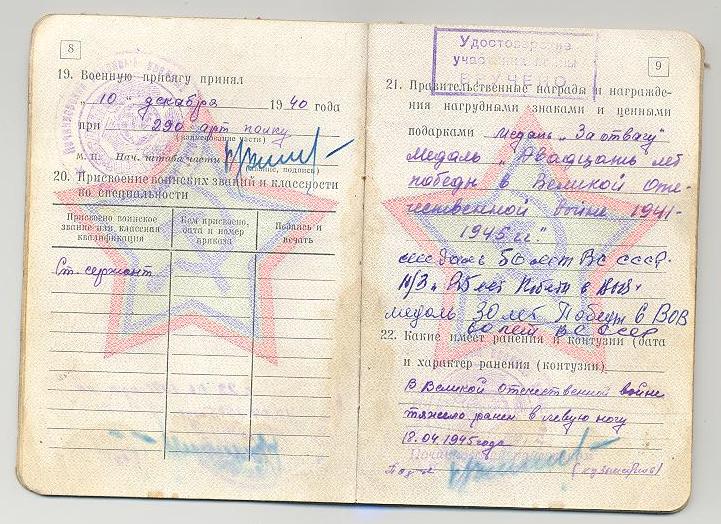 8
19. Военную присягу принял
„10" декабря 1940 года
при 290 арт полку
(наименование части)
м. п. Нач. штаба части
подпись)
20. Присвоение воинских званий и классности
по специальности
Присвоено воинское звание или классная квалификация
Кем присвоено, дата и номер приказа
Подпись и печать
Ст. сержант
Удостоверение
участника войны
ВРУЧЕНО
9
21. Правительственные награды и награжде-
ния нагрудными знаками и ценными
подарками медаль „За отвагу"
Медаль „Двадцать лет
победы в Великой Оте-
чественной войне 1941-
1945 гг."
медаль 50 лет ВС СССР.
Н/З „25 лет Победы в ВОВ"
медаль 30 лет Победы в ВОВ
60 лет ВС СССР
22. Какие имеет ранения и контузии (дата
и характер ранения (контузии)
В Великой Отечественной войне
тяжело ранен в левую ногу
18.04 1945 года